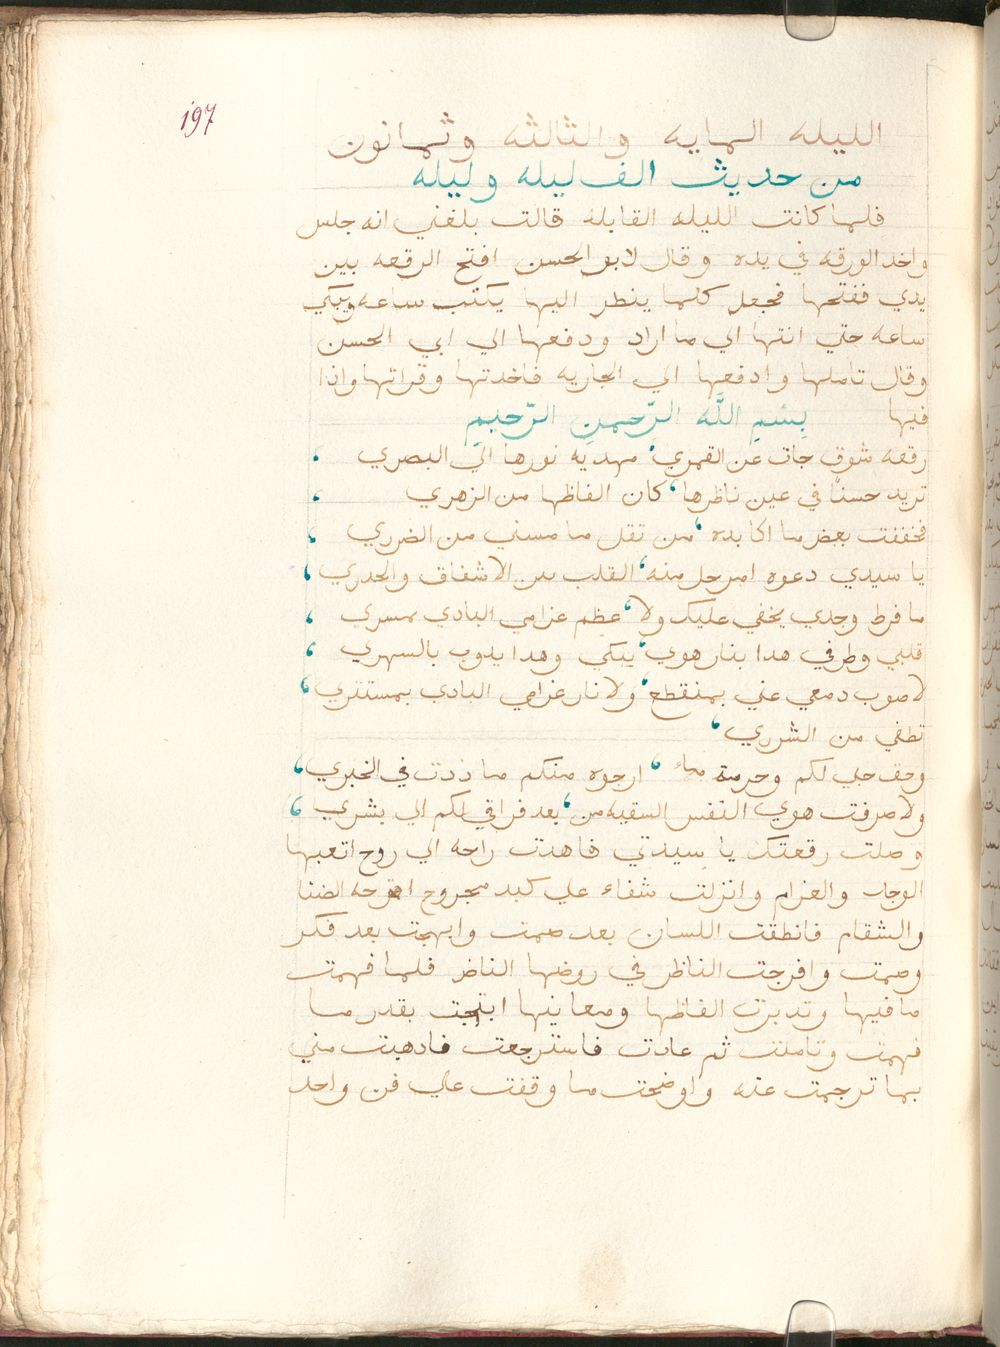 197
الليله المايه والثالثه وثمانون
من حديث الف ليله وليله
فلما كانت الليله القابله قالت بلغني انه جلس
واخد الورقه في يده وقال لابو الحسن افتح الرقعه بين
يدي ففتحها فجعل كلما ينطر اليها يكتب ساعه ويبكي
ساعه حتي انتها الي ما اراد ودفعها الي ابي الحسن
وقال تاملها وادفعها الي الجاريه فاخدتها وقراتها واذا
فيها بِسْمِ اللَّه الرَّحمنِ الرَّحيمِ
رقعه شوق جات عن القمري، مهديه نورها الي البصري
تريد حسنًا في عين ناظرها، كان الفاظها من الزهري
فخففت بعض ما اكابده، من تقل ما مسني من الضرري
يا سيدي دعوه امر حل منه، القلب بين الاشفاق والحدري
ما فرط وجدي يخفي عليك ولا، عظم غرامي البادي
قلبي وطرفي هدا بنار هوي، يبكي وهدا يدوب بالسهري
لا صوب دمعي عني بمنقطع، ولا نار غرامي البادي بمستتري
تطفي من الشرري،
وحق حبي لكم وحرمة ما، ارجوه منكم ما زدت في الخبري
ولا صرفت هوي النفس السقيه من، بعد فراقي لكم الي بشري
وصلت رقعتك يا سيدتي فاهدت راحه الي روح اتعبها
الوجد والغرام وانزلت شفاء علي كبد مجروح اقرحه الضنا
والسقام فانطقت اللسان بعد صمت وابهجت بعد فكر
وصمت وافرجت الناظر في روضها الناضر فلما فهمت
ما فيها وتدبرت الفاظها ومعانيها ابتهجت بقدر ما
فهمت وتاملت ثم عادت فاسترجعت فادهبت مني
بما ترجمت عنه واوضحت ما وقفت علي فن واحد